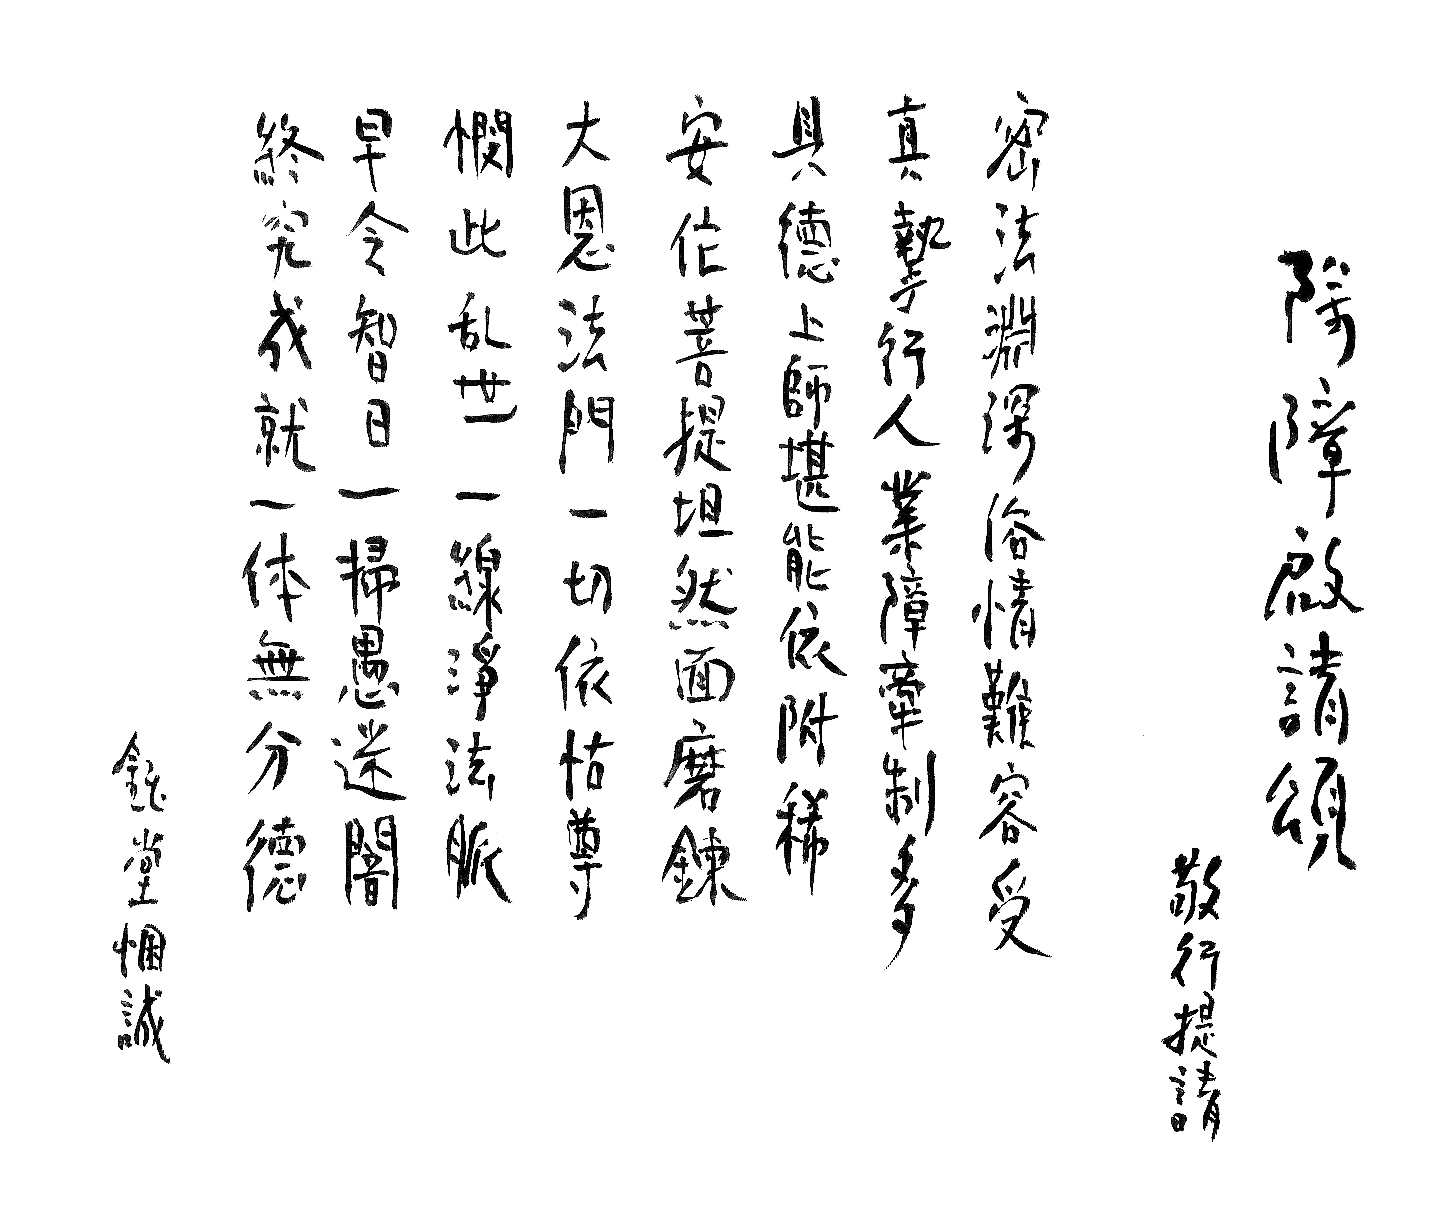 除障啟請頌
敬行提請
密法淵深俗情難容受
真摯行人業障牽制多
具德上師堪能依附稀
安住菩提坦然面磨鍊
大恩法門一切依怙尊
憫此乱世一線淨法脈
早令智日一掃愚迷闇
終究成就一体無分德
鈺堂悃誠